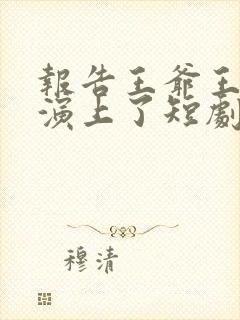 報告王爺王
演上了短劇
穆清